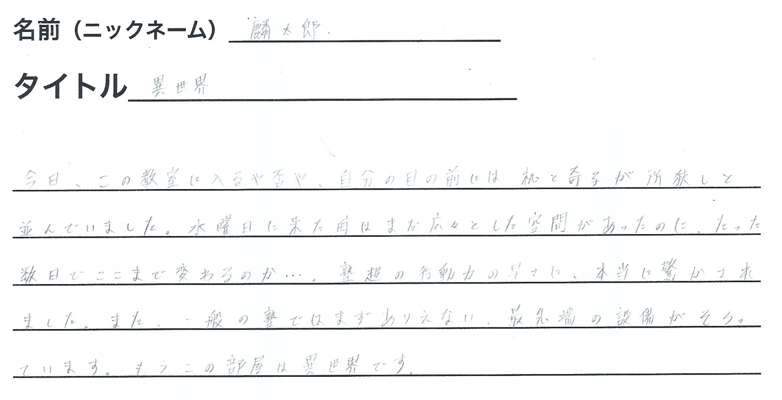 名前（ニックネーム） 麟太郎.
タイトル 異世界
今日、この教室に入るや否や、自分の目の前には机と椅子が所狭しと
並んでいました。水曜日に来た時はまだ広々とした空間があったのに、たった
数日でここまで変わるのか…。塾超の行動力の早さに、本当に驚かされ
ました。また、一般の塾ではまずありえない、最先端の設備がそろっ
ています。もうこの部屋は異世界です.